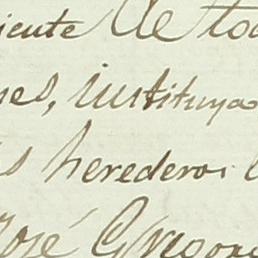 iente de tod
nes, instituyo
s herederos
José Gregor